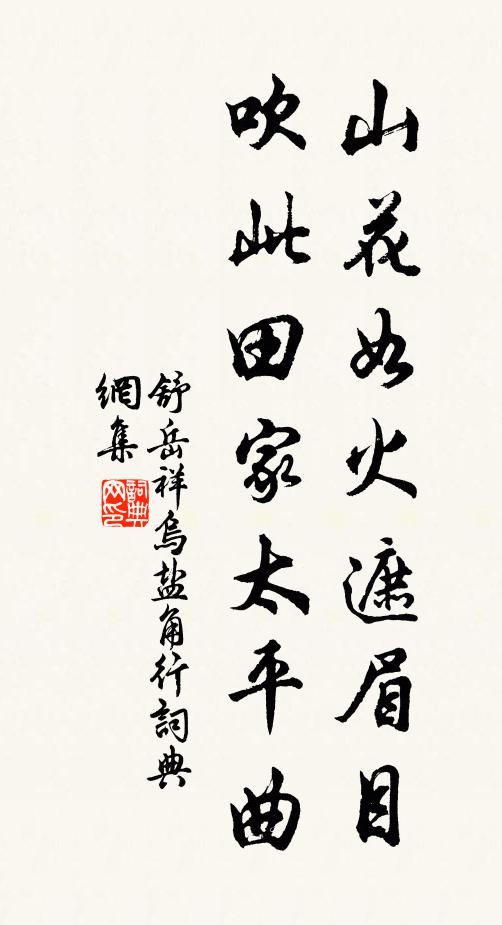 山花如火遮眉目
吹此田家太平曲
舒岳祥烏盐角行詞典
網集
詞典
网印